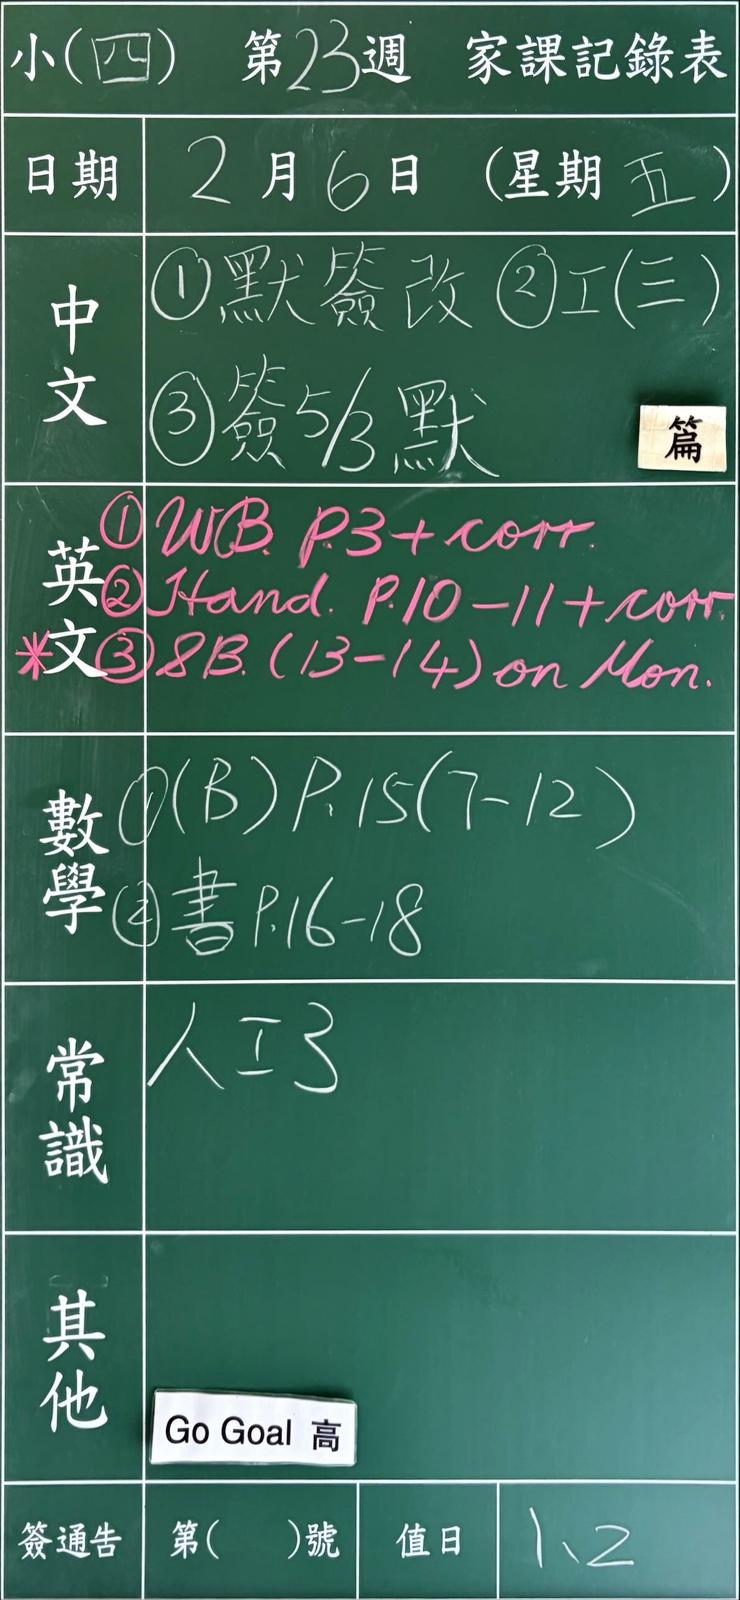 小(四) 第23週 家課記錄表
日期 2月6日 (星期五)
中文
①默簽改 ②工(三)
③簽5/3默
篇
英文
①WB. P.3+corr.
②Hand. P.10-11+corr.
*③SB. (13-14) on Mon.
數學
①(B) P.15(7-12)
②書P.16-18
常識
人工3
其他
Go Goal 高
簽通告 第( )號 值日 1、2